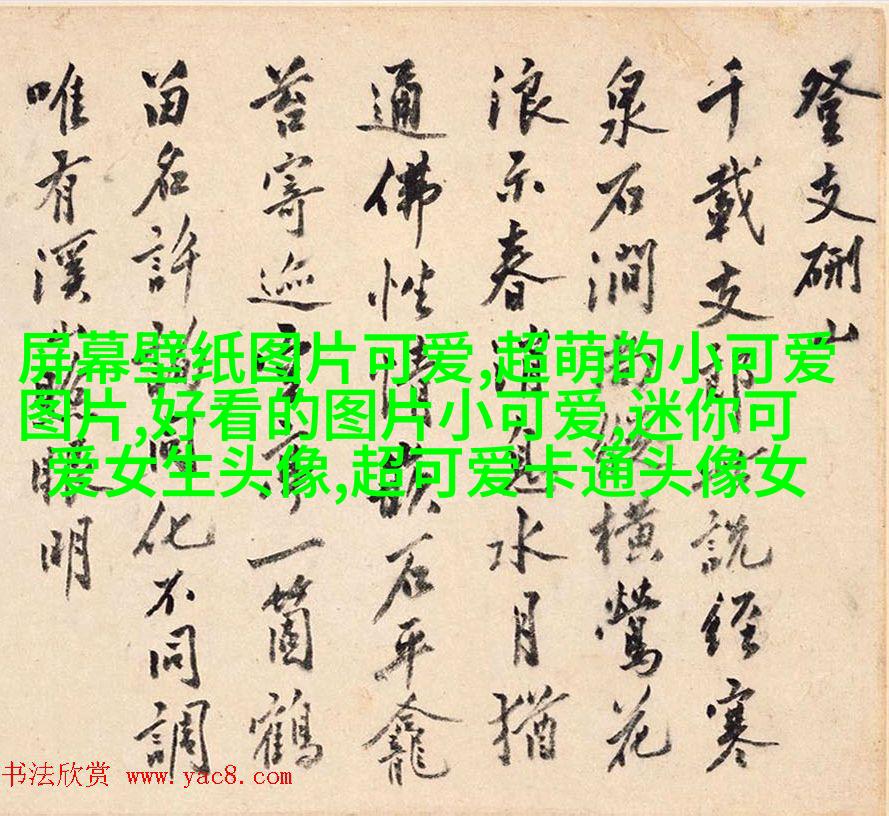 登支硎山
千載支郎說經寒
泉石澗橫鶯花
浪示春消息水月猶
通佛性情石平龕
苔寄巡一箇鶴
留名許同化不同調
唯有溪山眼明
屏幕壁纸图片可爱,超萌的小可爱
图片,好看的图片小可爱,迷你可
爱女生头像,超可爱卡通头像女
书法欣赏 www.yac8.com